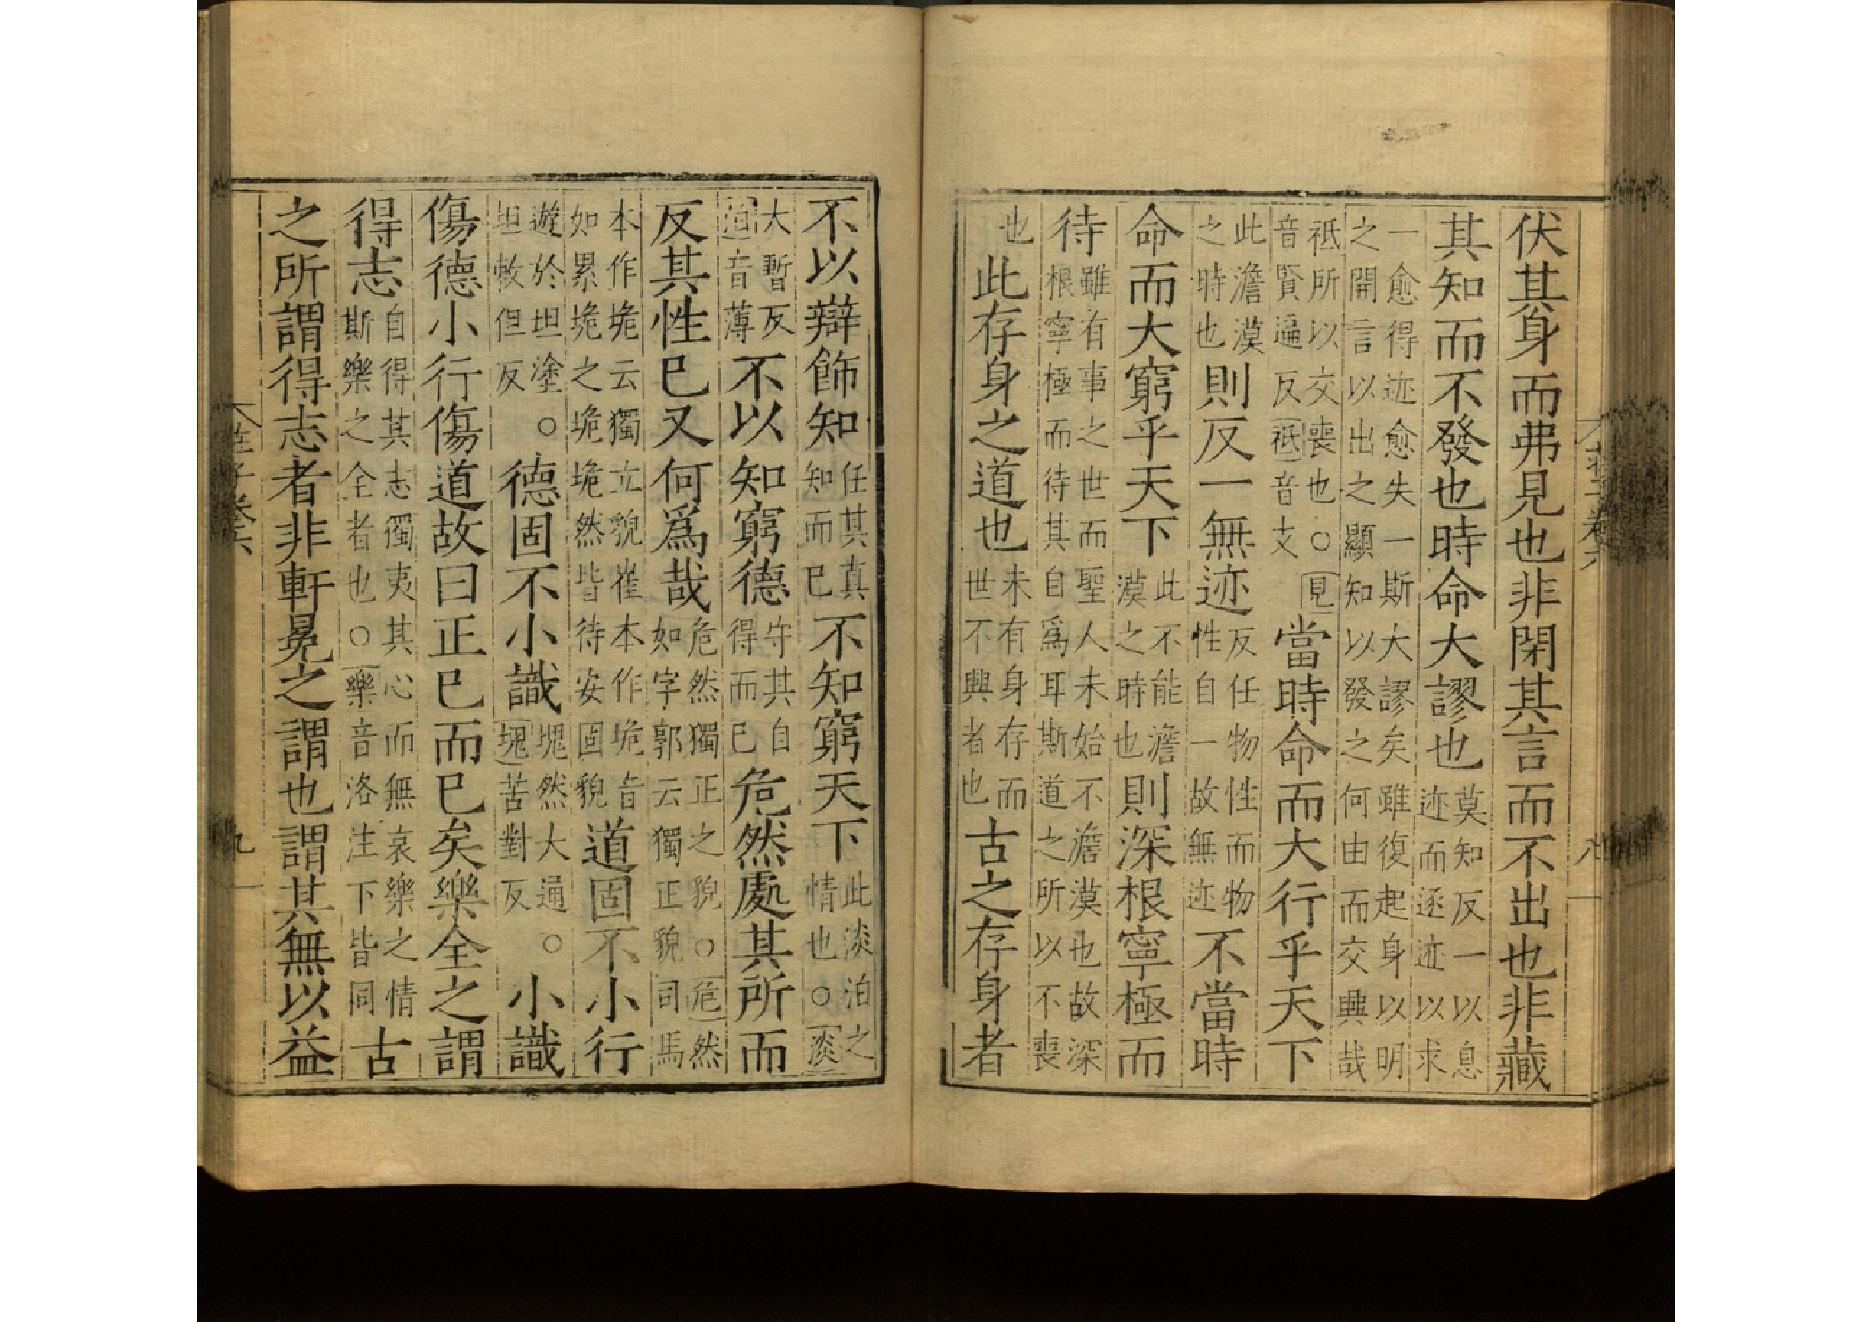 莊子卷六
八
伏其身而弗見也非閉其言而不出也非藏
其知而不發也時命大謬也莫知反一以息迹而逐迹以求
一愈得迹愈失一斯大謬矣雖復起身以明之開言以出之顯知以發之何由而交興哉
祗所以交喪也○見音賢遍反祗音支當時命而大行乎天下
此澹漠之時也則反一無迹反任物性而物性自一故無迹不當時
命而大窮乎天下此不能澹漠之時也則深根寧極而
待雖有事之世而聖人未始不澹漠也故深根寧極而待其自爲耳斯道之所以不喪
也此存身之道也未有身存而世不興者也古之存身者
不以辯飾知任其真知而已不知窮天下此淡泊之情也○淡
大暫反泊音薄不以知窮德守其自得而已危然處其所而
反其性已又何爲哉危然獨正之貌○危然如字郭云獨正貌司馬
本作垝云獨立貌崔本作垝音如累垝之垝垝然皆待安固貌道固不小行
遊於坦塗○坦敕但反德固不小識塊然大通○塊苦對反小識
傷德小行傷道故曰正已而已矣樂全之謂
得志自得其志獨夷其心而無哀樂之情斯樂之全者也○樂音洛注下皆同古
之所謂得志者非軒冕之謂也謂其無以益
莊子卷六
九